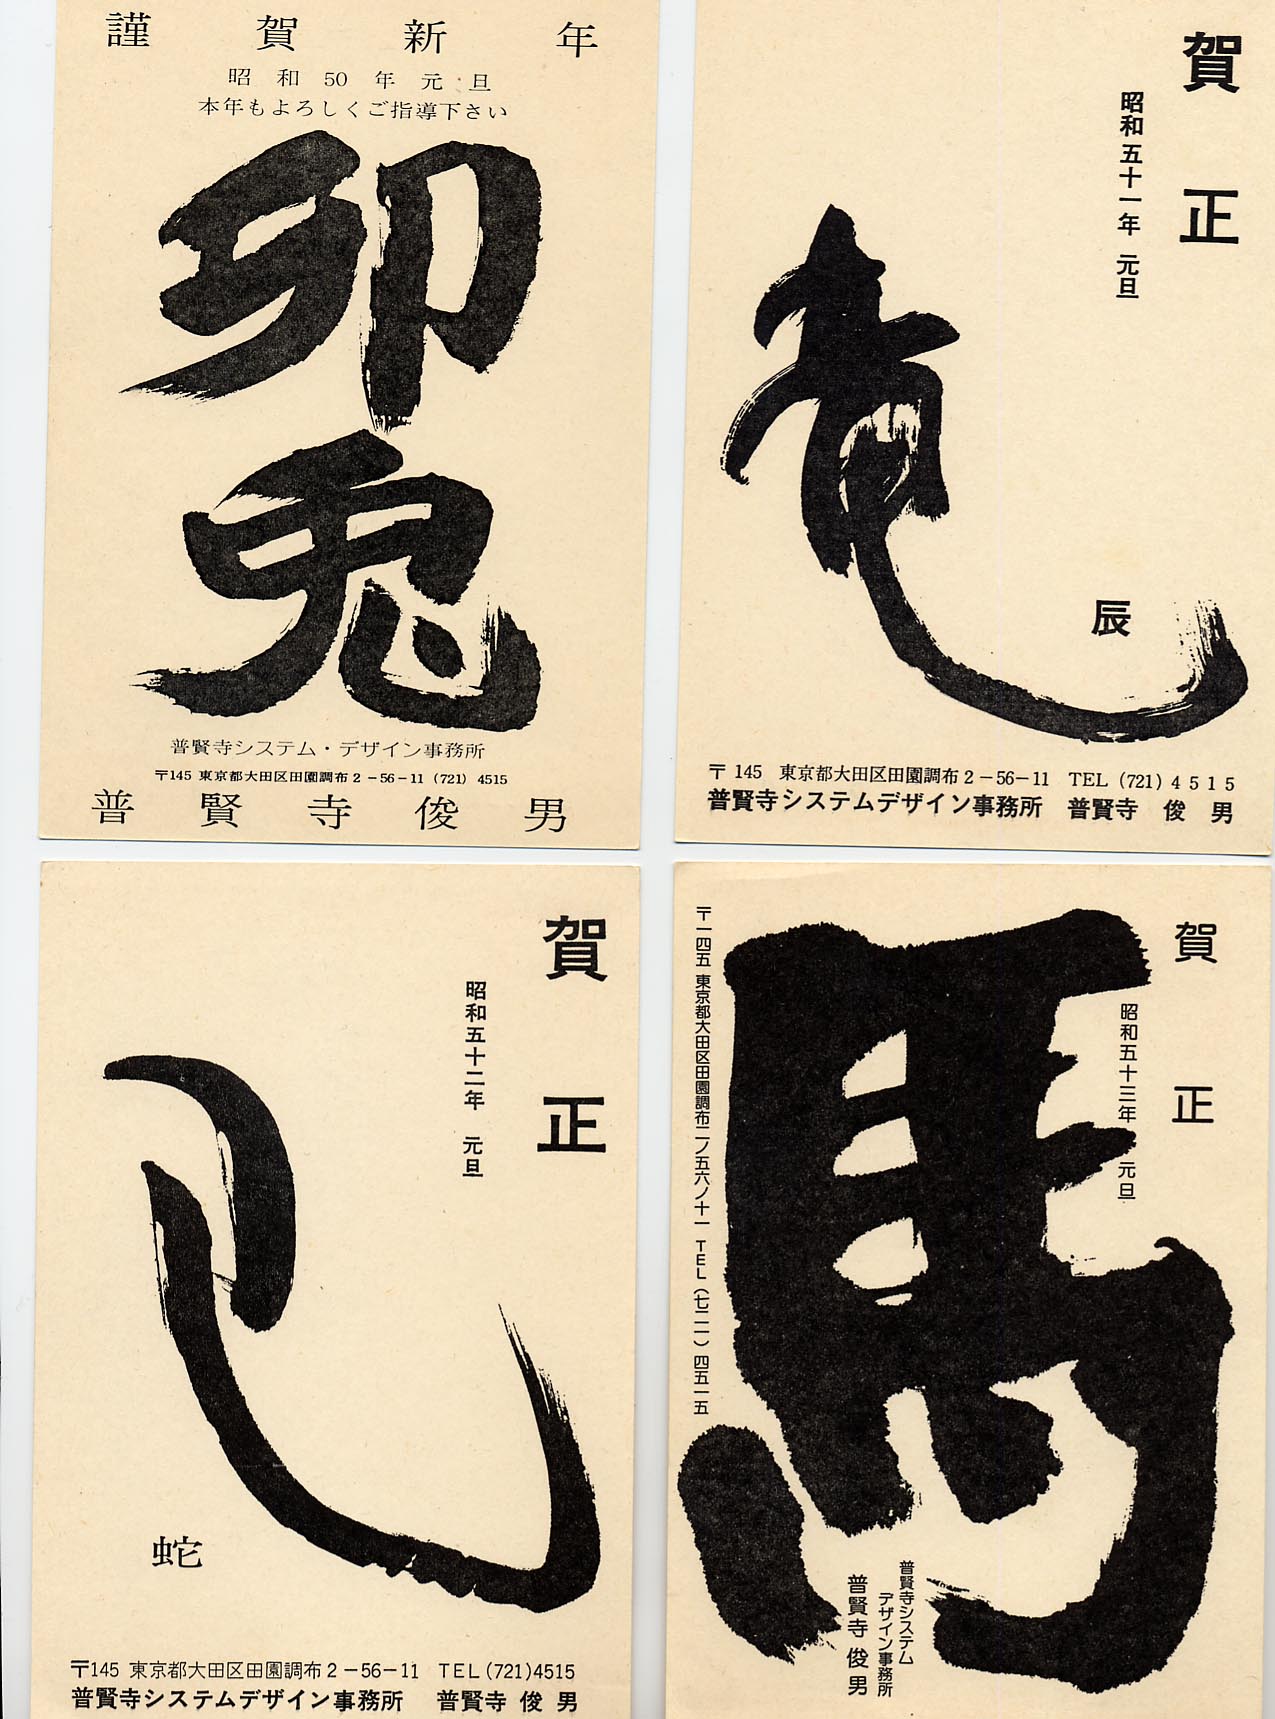 謹賀新年
昭和50年元旦
本年もよろしくご指導下さい
卯
兎
普賢寺システム・デザイン事務所
〒145 東京都大田区田園調布2-56-11 (721) 4515
普賢寺俊男
賀正
昭和五十一年 元旦
竜
辰
〒145 東京都大田区田園調布2-56-11 TEL (721) 4515
普賢寺システムデザイン事務所 普賢寺 俊男
賀正
昭和五十二年 元旦
巳
蛇
〒145 東京都大田区田園調布2-56-11 TEL(721)4515
普賢寺システムデザイン事務所 普賢寺 俊男
賀正
昭和五十三年 元旦
馬
普賢寺システム
デザイン事務所
普賢寺 俊男
〒一四五 東京都大田区田園調布二ノ五六ノ十一 TEL(七二一)四五一五